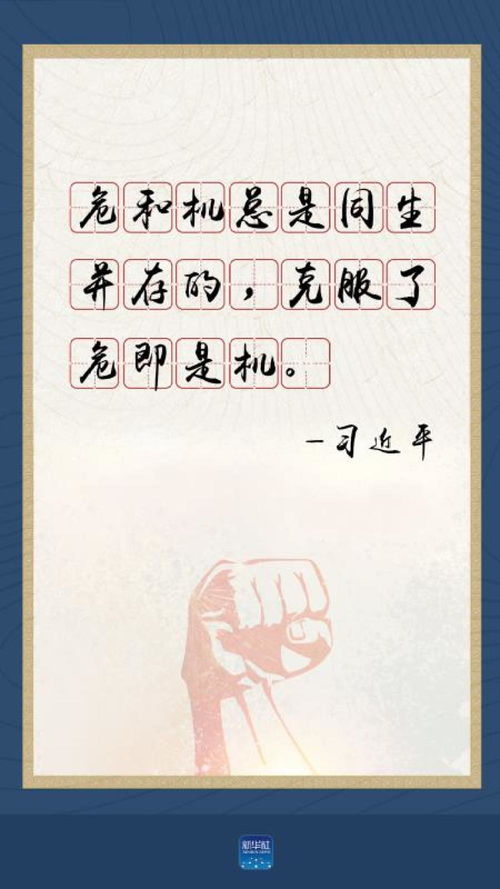 危和机总是同生
并存的，克服了
危即是机。
–习近平
新华社